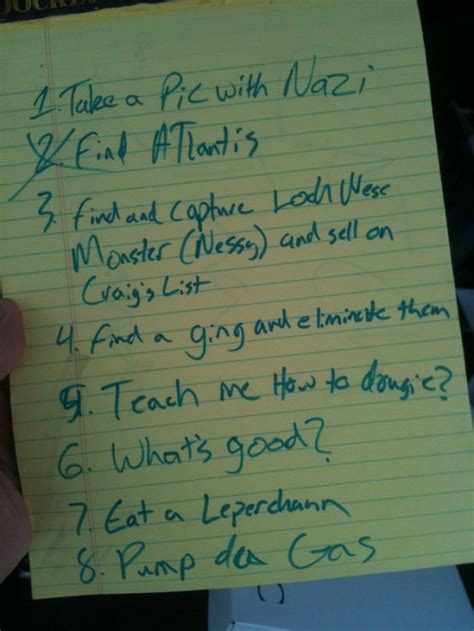 1. Take a Pic with Nazi
2. Find ATlantis
3. find and capture Loch Nese
Monster (Nessy) and sell on
Craig's List
4. find a ging and eliminate them
5. Teach me How to dougie?
6. What's good?
7. Eat a Leperchann
8. Pump den Gas